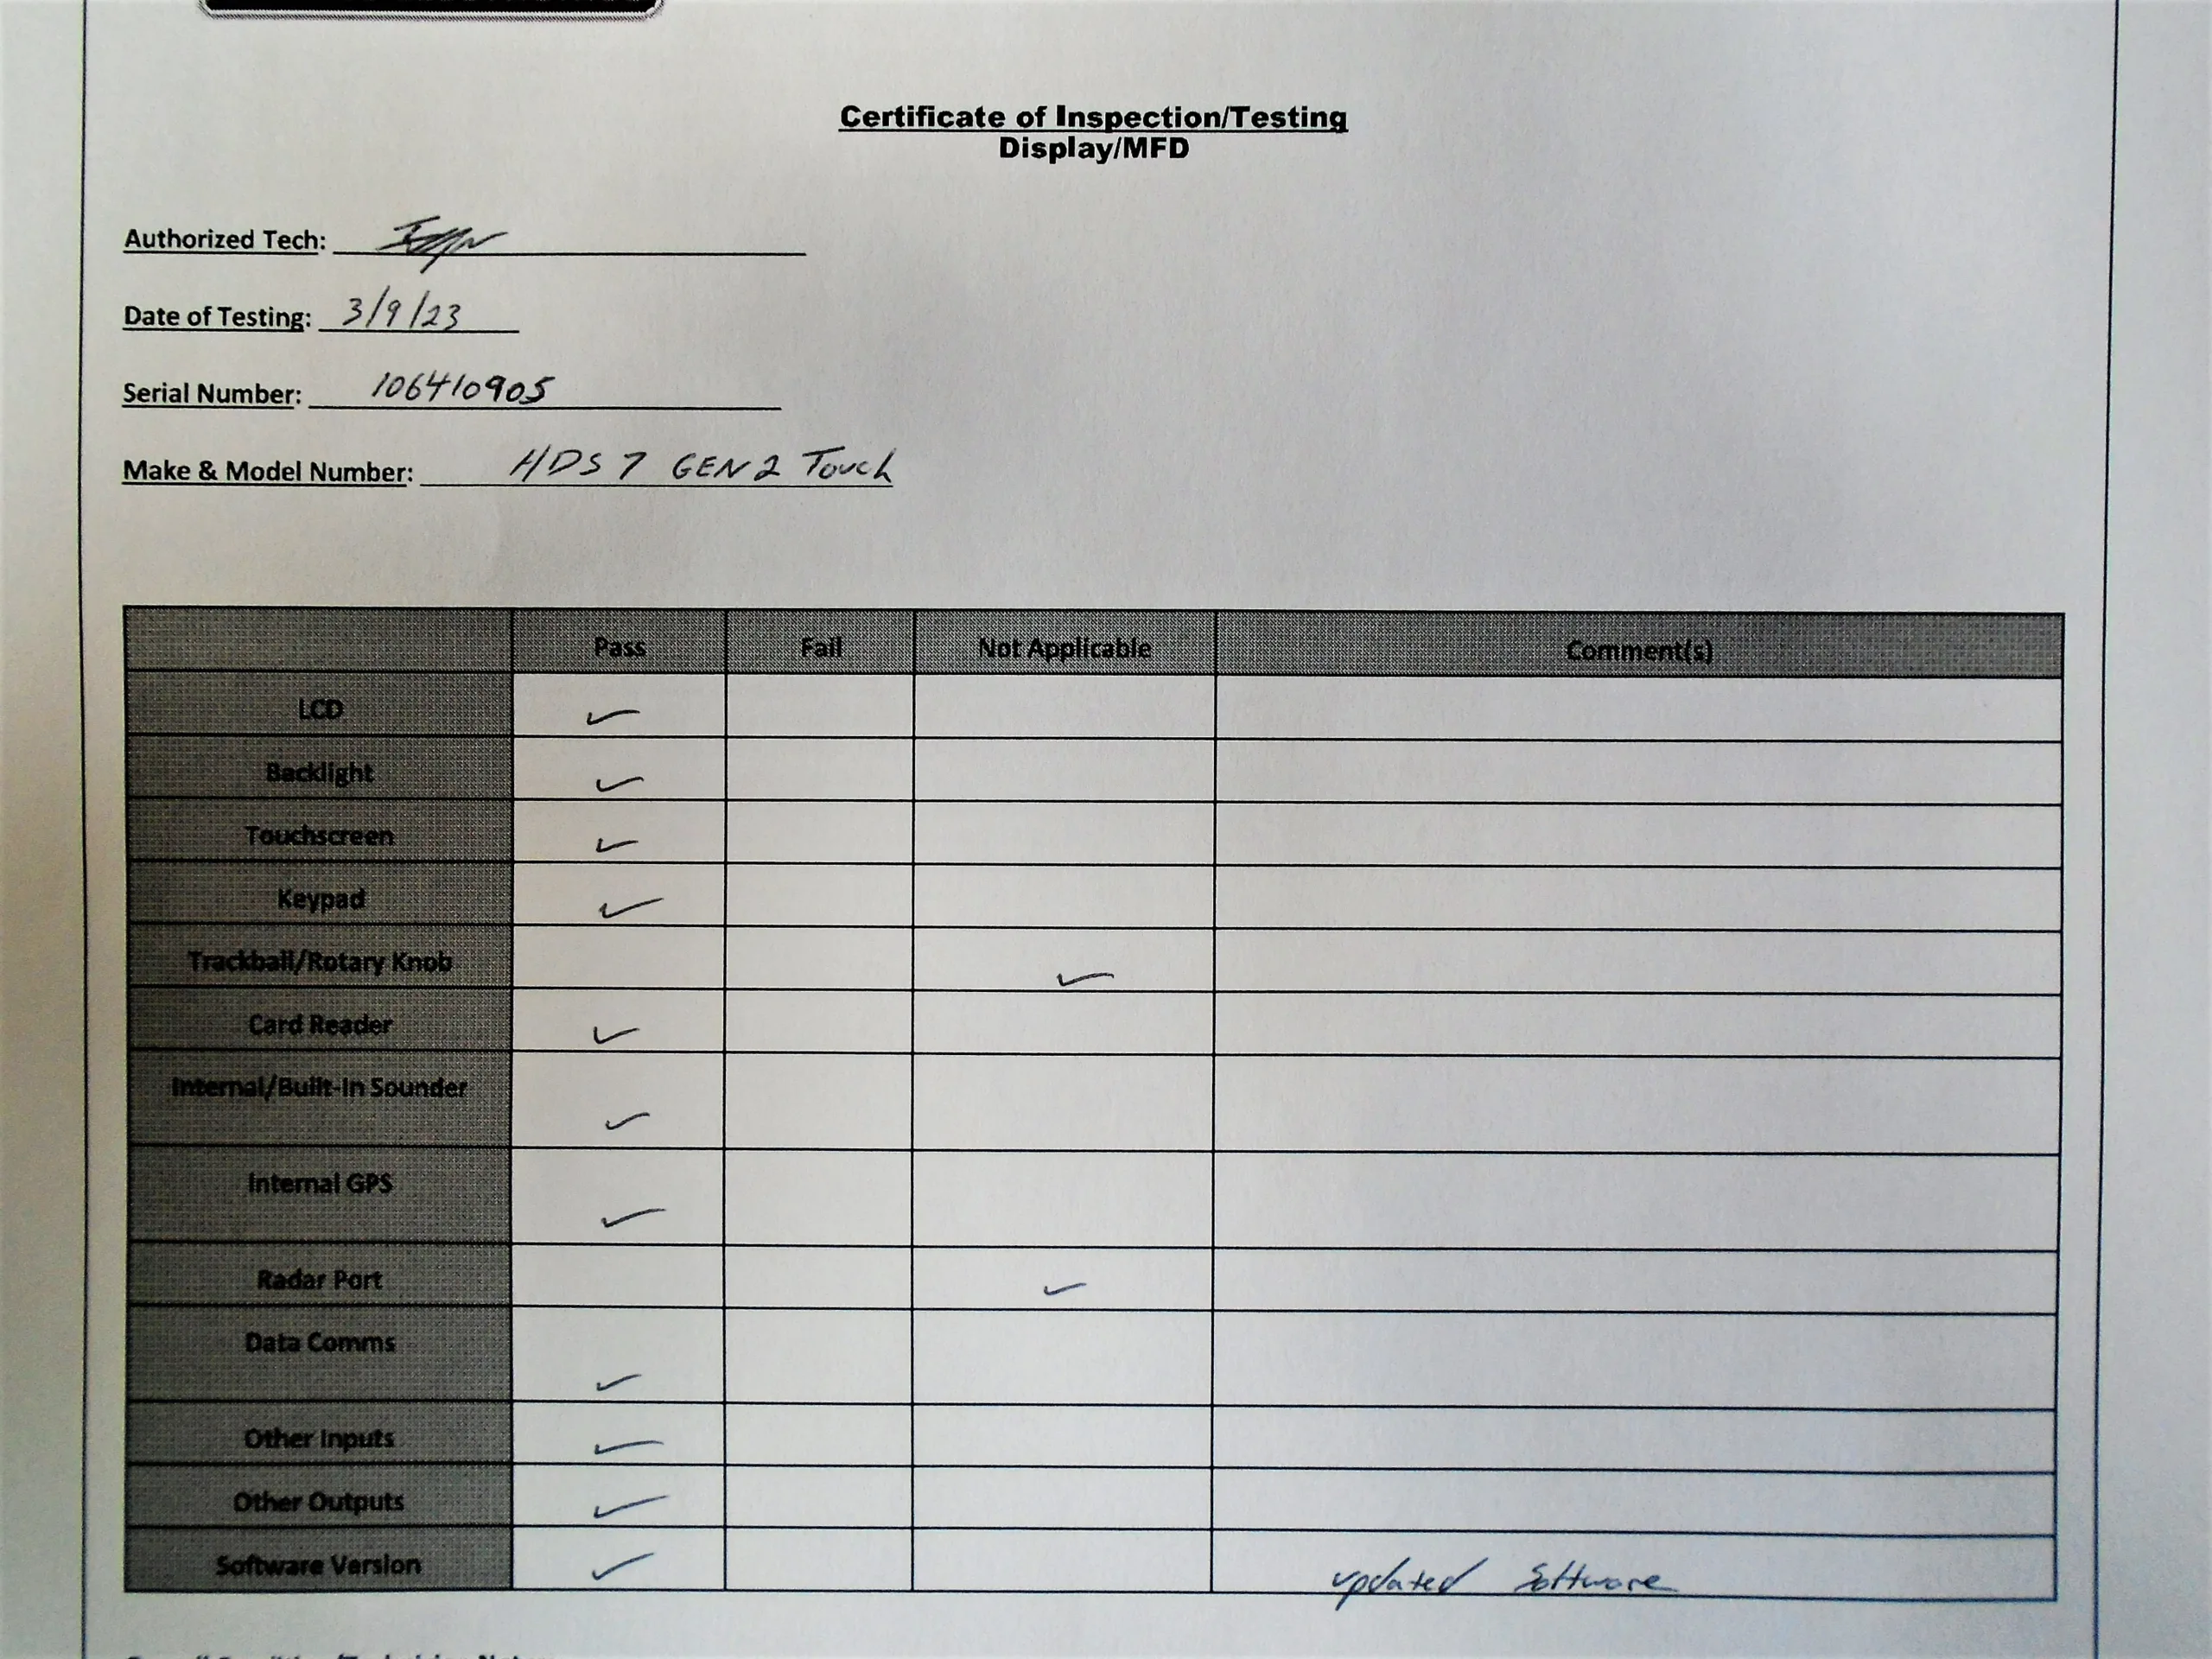 Certificate of Inspection/Testing
Display/MFD
Authorized Tech:
Date of Testing: 3/9/23
Serial Number: 106410905
Make & Model Number: HDS 7 GEN 2 Touch
Pass Fail Not Applicable Comment(s)
LCD ✓
Backlight ✓
Touchscreen ✓
Keypad ✓
Trackball/Rotary Knob ✓
Card Reader ✓
Internal/Built-In Sounder ✓
Internal GPS ✓
Radar Port ✓
Data Comms ✓
Other Inputs ✓
Other Outputs ✓
Software Version ✓ updated Software